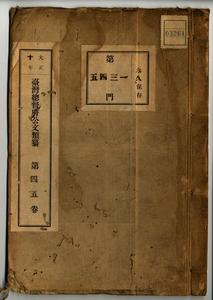 大正
十年
臺灣總督府公文類纂 第四五卷
第一三四五門
永久保存